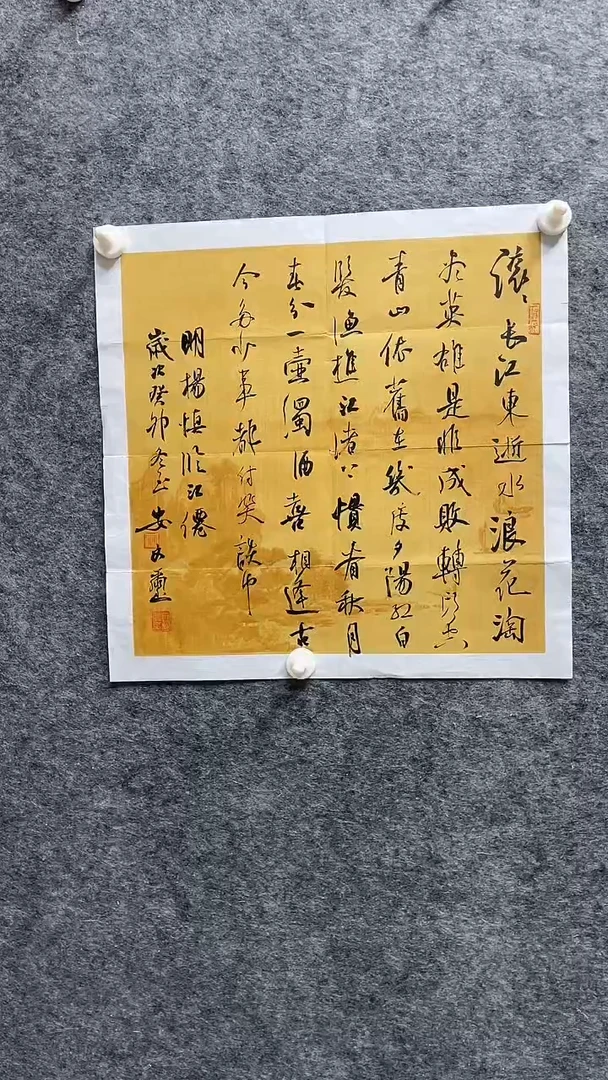 滚〻长江東逝水浪花淘
尽英雄是非成敗轉頭空
青山依舊在幾度夕陽红白
髮渔樵江渚上慣看秋月
春风一壺濁酒喜相逢古
今多少事都付笑談中
明楊慎臨江僊
歲次癸卯冬安